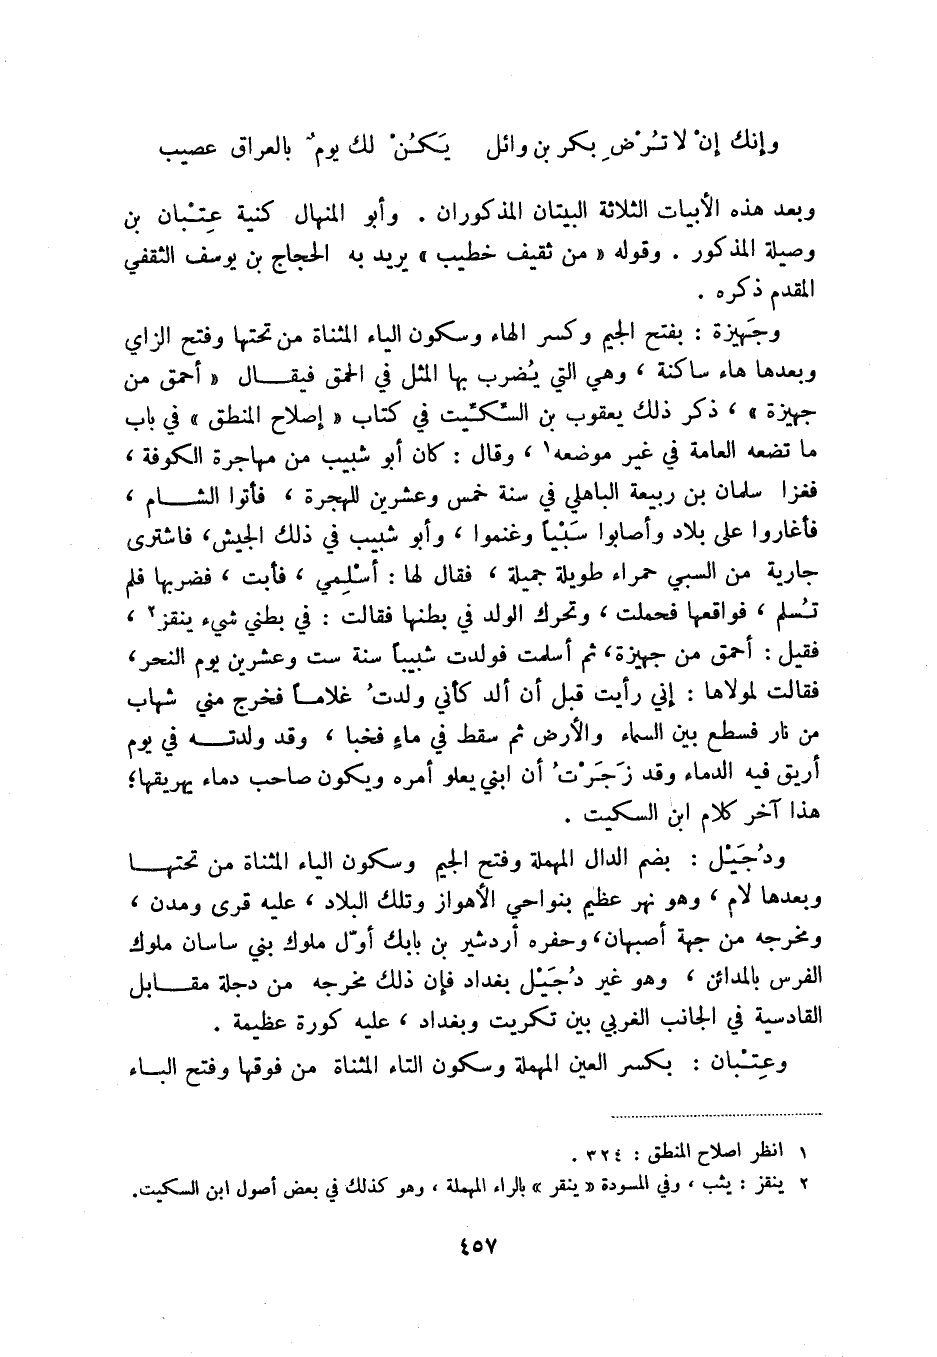 وإنك إنْ لا تُرْضِ بكر بن وائل يَكُنْ لك يومٌ بالعراق عصيب
وبعد هذه الأبيات الثلاثة البيتان المذكوران . وأبو المنهال كنية عِتْبان بن
وصيلة المذكور . وقوله « من ثقيف خطيب » يريد به الحجاج بن يوسف الثقفي
المقدم ذكره .
وجَهيزة : بفتح الجيم وكسر الهاء وسكون الياء المثناة من تحتها وفتح الزاي
وبعدها هاء ساكنة ، وهي التي يُضرب بها المثل في الحمق فيقال « أحمق من
جهيزة » ، ذكر ذلك يعقوب بن السِّكِّيت في كتاب « إصلاح المنطق » في باب
ما تضعه العامة في غير موضعه١ ، وقال : كان أبو شبيب من مهاجرة الكوفة ،
فغزا سلمان بن ربيعة الباهلي في سنة خمس وعشرين للهجرة ، فأتوا الشام ،
فأغاروا على بلاد وأصابوا سَبْياً وغنموا ، وأبو شبيب في ذلك الجيش، فاشترى
جارية من السبي حمراء طويلة جميلة ، فقال لها : أسْلِمي ، فأبت ، فضربها فلم
تُسلم ، فواقعها فحملت ، وتحرك الولد في بطنها فقالت : في بطني شيء ينقز٢ ،
فقيل : أحمق من جهيزة، ثم أسلمت فولدت شبيباً سنة ست وعشرين يوم النحر،
فقالت لمولاها : إني رأيت قبل أن ألد كأني ولدتُ غلاماً فخرج مني شهاب
من نار فسطع بين السماء والأرض ثم سقط في ماءٍ فخبا ، وقد ولدته في يوم
أريق فيه الدماء وقد زَجَرْتُ أن ابني يعلو أمره ويكون صاحب دماء يهريقها؛
هذا آخر كلام ابن السكيت .
ودُجَيْل : بضم الدال المهملة وفتح الجيم وسكون الياء المثناة من تحتها
وبعدها لام ، وهو نهر عظيم بنواحي الأهواز وتلك البلاد ، عليه قرى ومدن ،
ومخرجه من جهة أصبهان، وحفره أردشير بن بابك أوّل ملوك بني ساسان ملوك
الفرس بالمدائن ، وهو غير دُجَيْل بغداد فإن ذلك مخرجه من دجلة مقابل
القادسية في الجانب الغربي بين تكريت وبغداد ، عليه كورة عظيمة .
وعِتْبان : بكسر العين المهملة وسكون التاء المثناة من فوقها وفتح الباء
١ انظر اصلاح المنطق : ٣٢٤ .
٢ ينقز : يثب ، وفي المسودة « ينقر » بالراء المهملة ، وهو كذلك في بعض أصول ابن السكيت.
٤٥٧